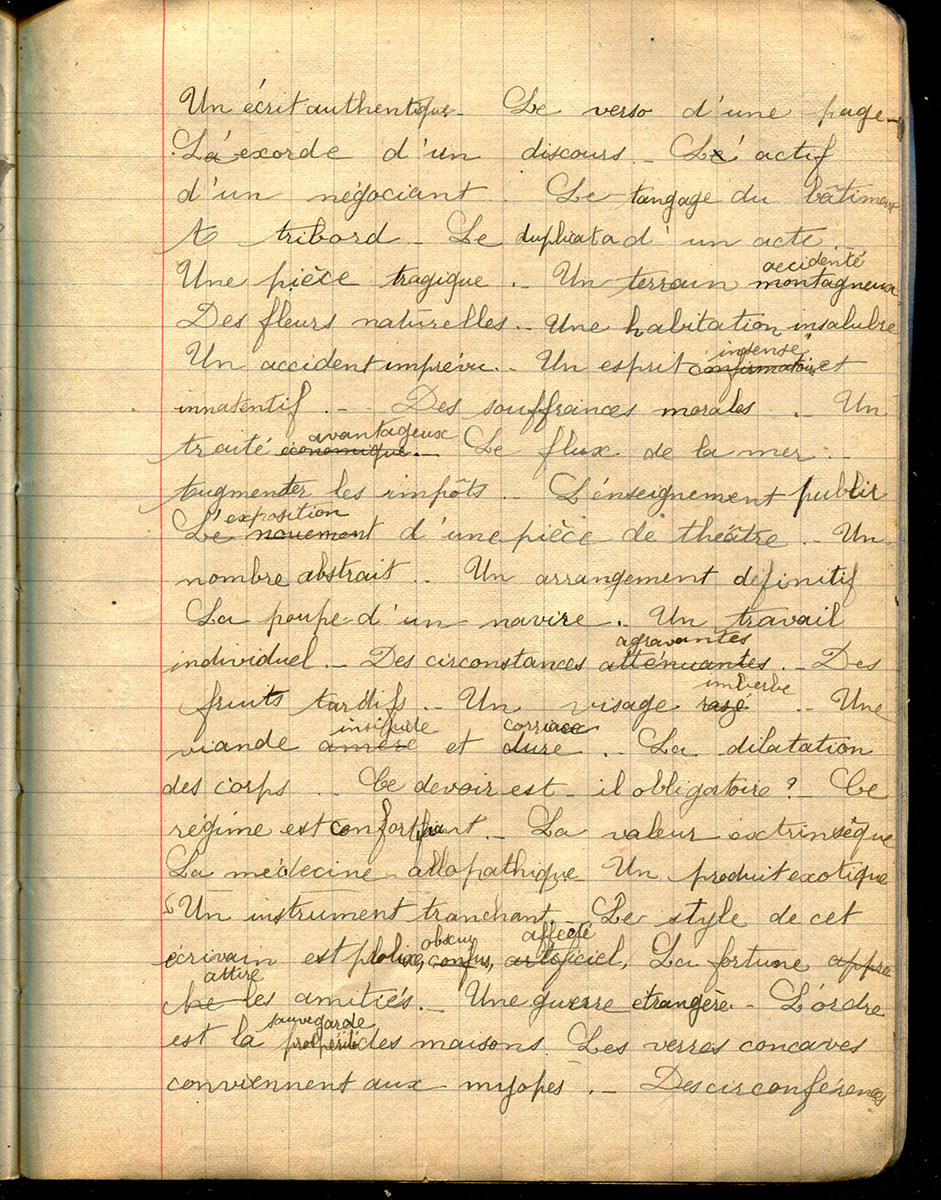 Un écrit authentique. Le verso d'une page.
L'exorde d'un discours. _ L'actif
d'un négociant. Le tangage du bâtiment
A tribord _ Le duplicata d'un acte
accidenté
Une pièce tragique. _ Un terrain montagneux
Des fleurs naturelles. _ Une habitation insalubre
insensé
Un accident imprévu. _ Un esprit et
innatentif. _ Des souffrances morales. _ Un
avantageux
traité économique. _ Le flux de la mer. _
augmenter les impôts. _ L'enseignement public
L'exposition
Le nouement d'une pièce de théâtre. _ Un
nombre abstrait. _ Un arrangement définitif
La poupe d'un navire. _ Un travail
agravantes
individuel. _ Des circonstances atténuantes. _ Des
imberbe
fruits tardifs. _ Un visage rasé. _ Une
insipide coriace
viande amère et dure. _ La dilatation
des corps. _ Ce devoir est-il obligatoire? _ Ce
régime est _ La valeur extrinsèque
La médecine allopathique. Un produit exotique
Un instrument tranchant. _ Le style de cet
obscur affecté
écrivain est prolixe, confus, artificiel, La fortune appro
attire
che les amitiés. _ Une guerre etrangère. _ L'ordre
sauvegarde
est la prospérité des maisons. Les verres concaves
conviennent aux myopes. _ Des circonférences